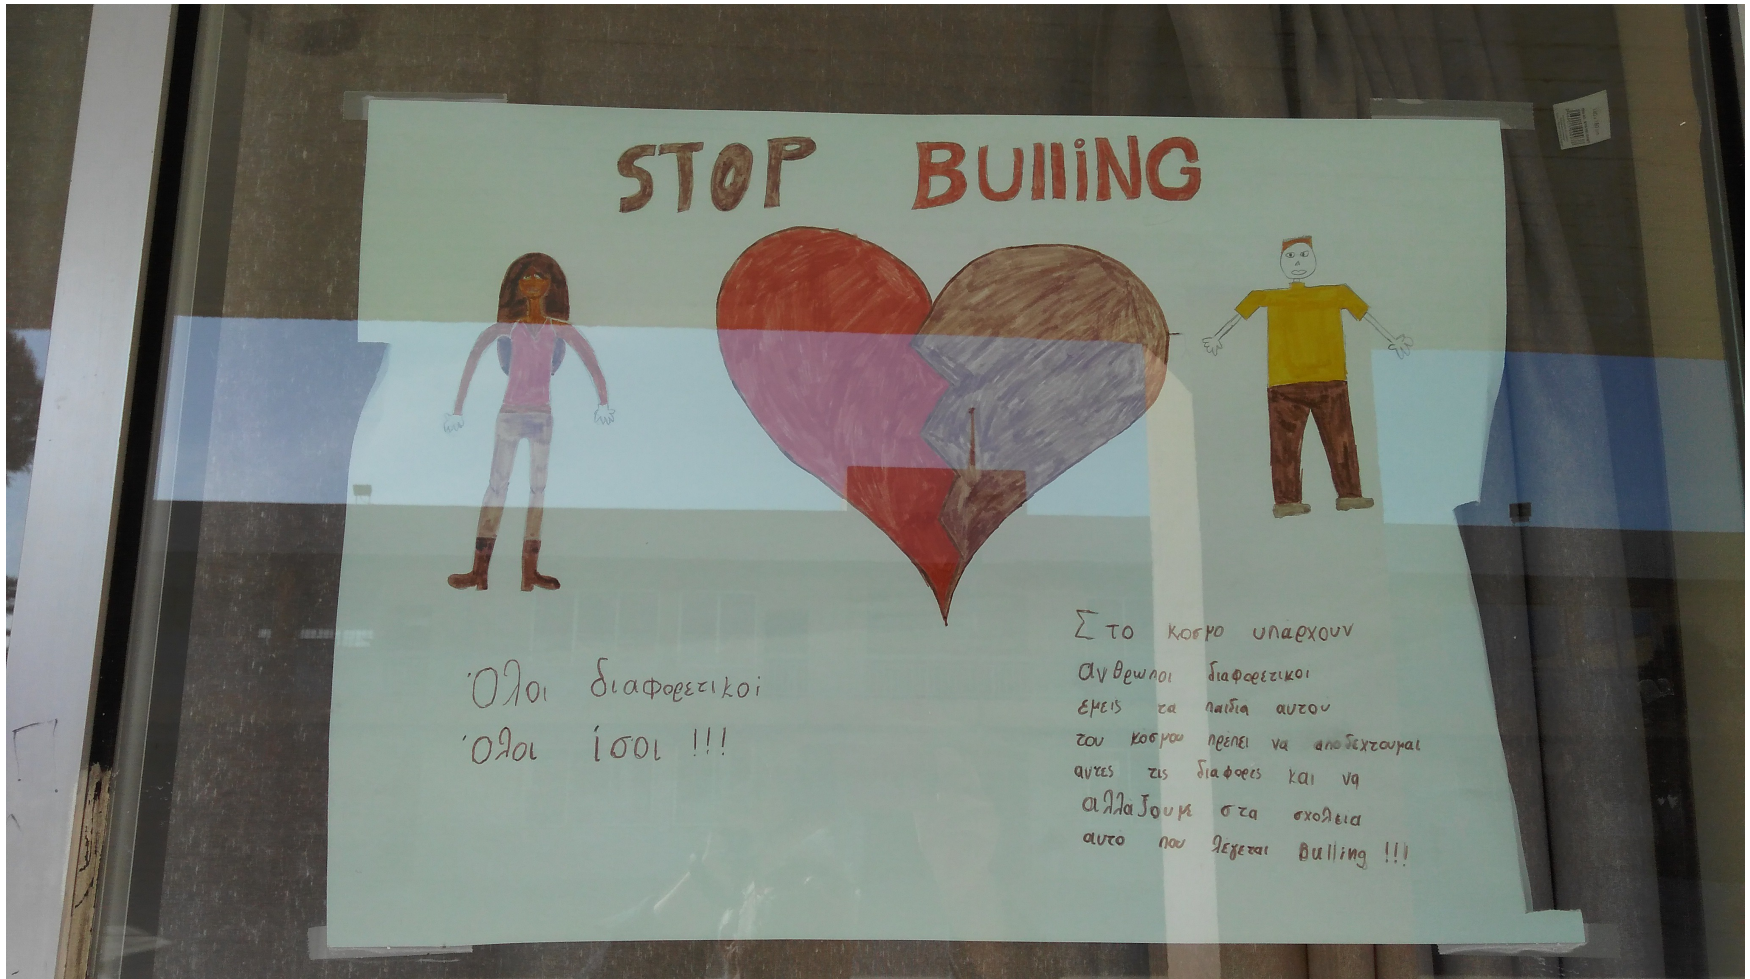 STOP BUlliNG
Όλοι διαφορετικοί
Όλοι ίσοι !!!
Στο κοσμο υπάρχουν
ανθρωποι διαφορετικοι
εμεις τα παιδια αυτου
του κοσμου πρέπει να αποδεχτουμαι
αυτες τις διαφορες και να
αλλαξουμε στα σχολεια
αυτο που λέγεται Bulling !!!